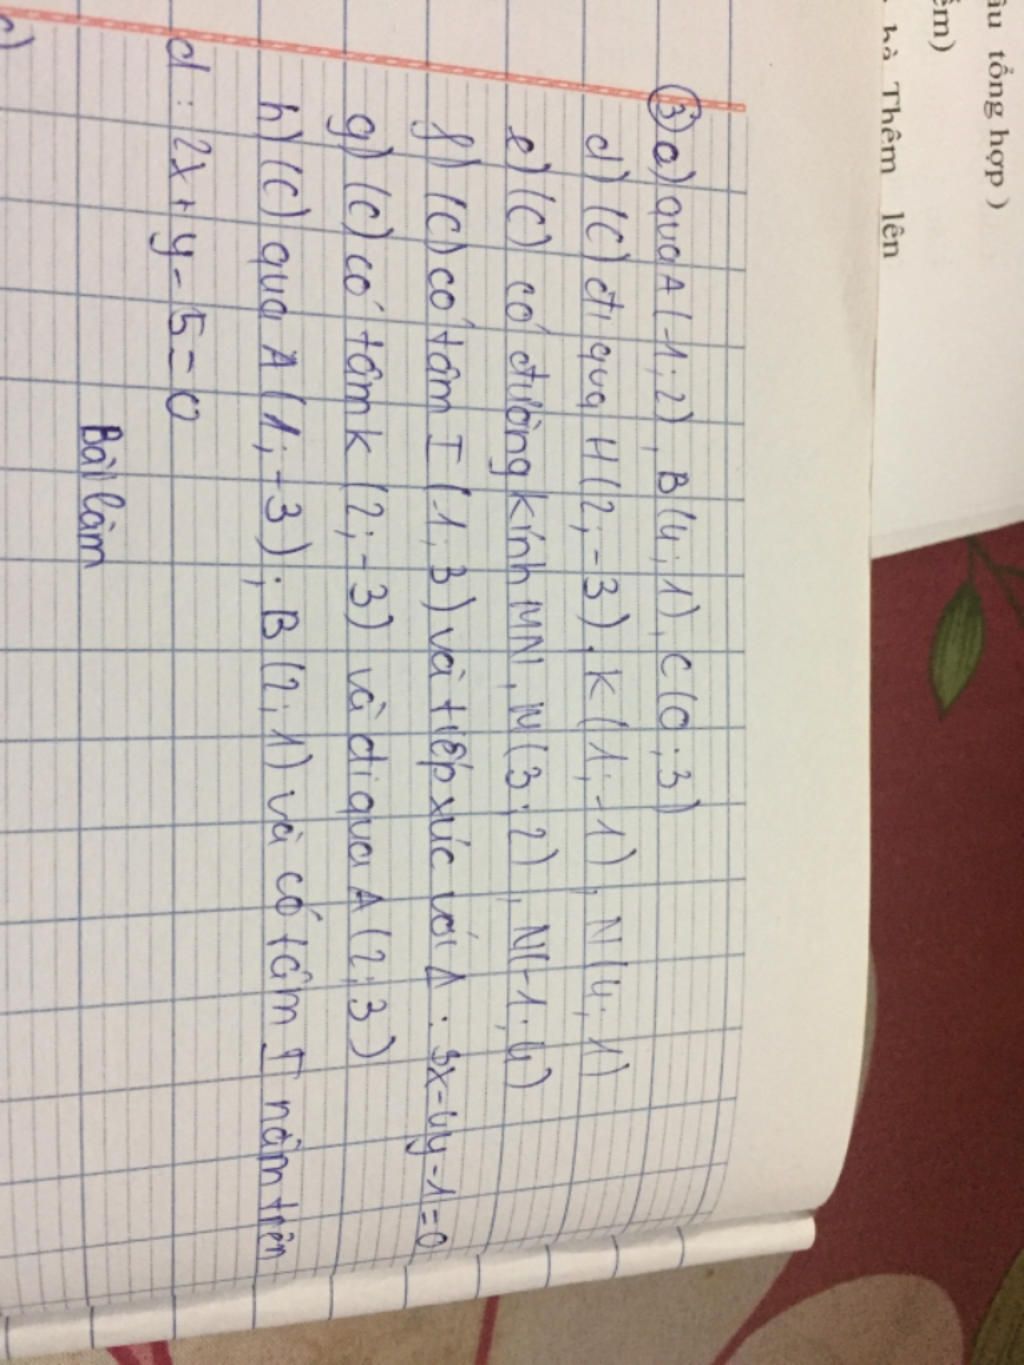 tổng hợp )
Thêm lên
③ a) qua A (-1; 2), B (4; 1), C (0; 3)
d) (C) đi qua H (2; -3), K (1; -1), N (4; 1)
e) (C) có đường kính MN, M (3; 2), N (-1; 4)
f) (C) có tâm I (1; 3) và tiếp xúc với Δ : 3x - 4y - 1 = 0
g) (C) có tâm K (2; -3) và đi qua A (2; 3)
h) (C) qua A (1; -3); B (2; 1) và có tâm I nằm trên
d : 2x + y - 5 = 0
Bài làm